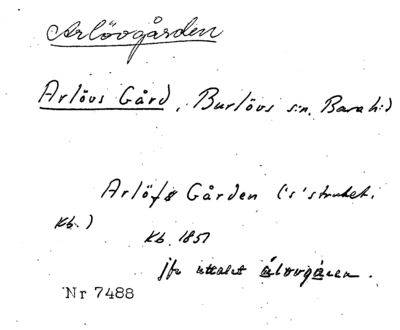 Arlövgården
Arlövs Gård, Burlövs sn. Bara hd
Arlöfs Gården ('s' struket.
Kb.)
Kb. 1851
jfr uttalet
Nr 7488